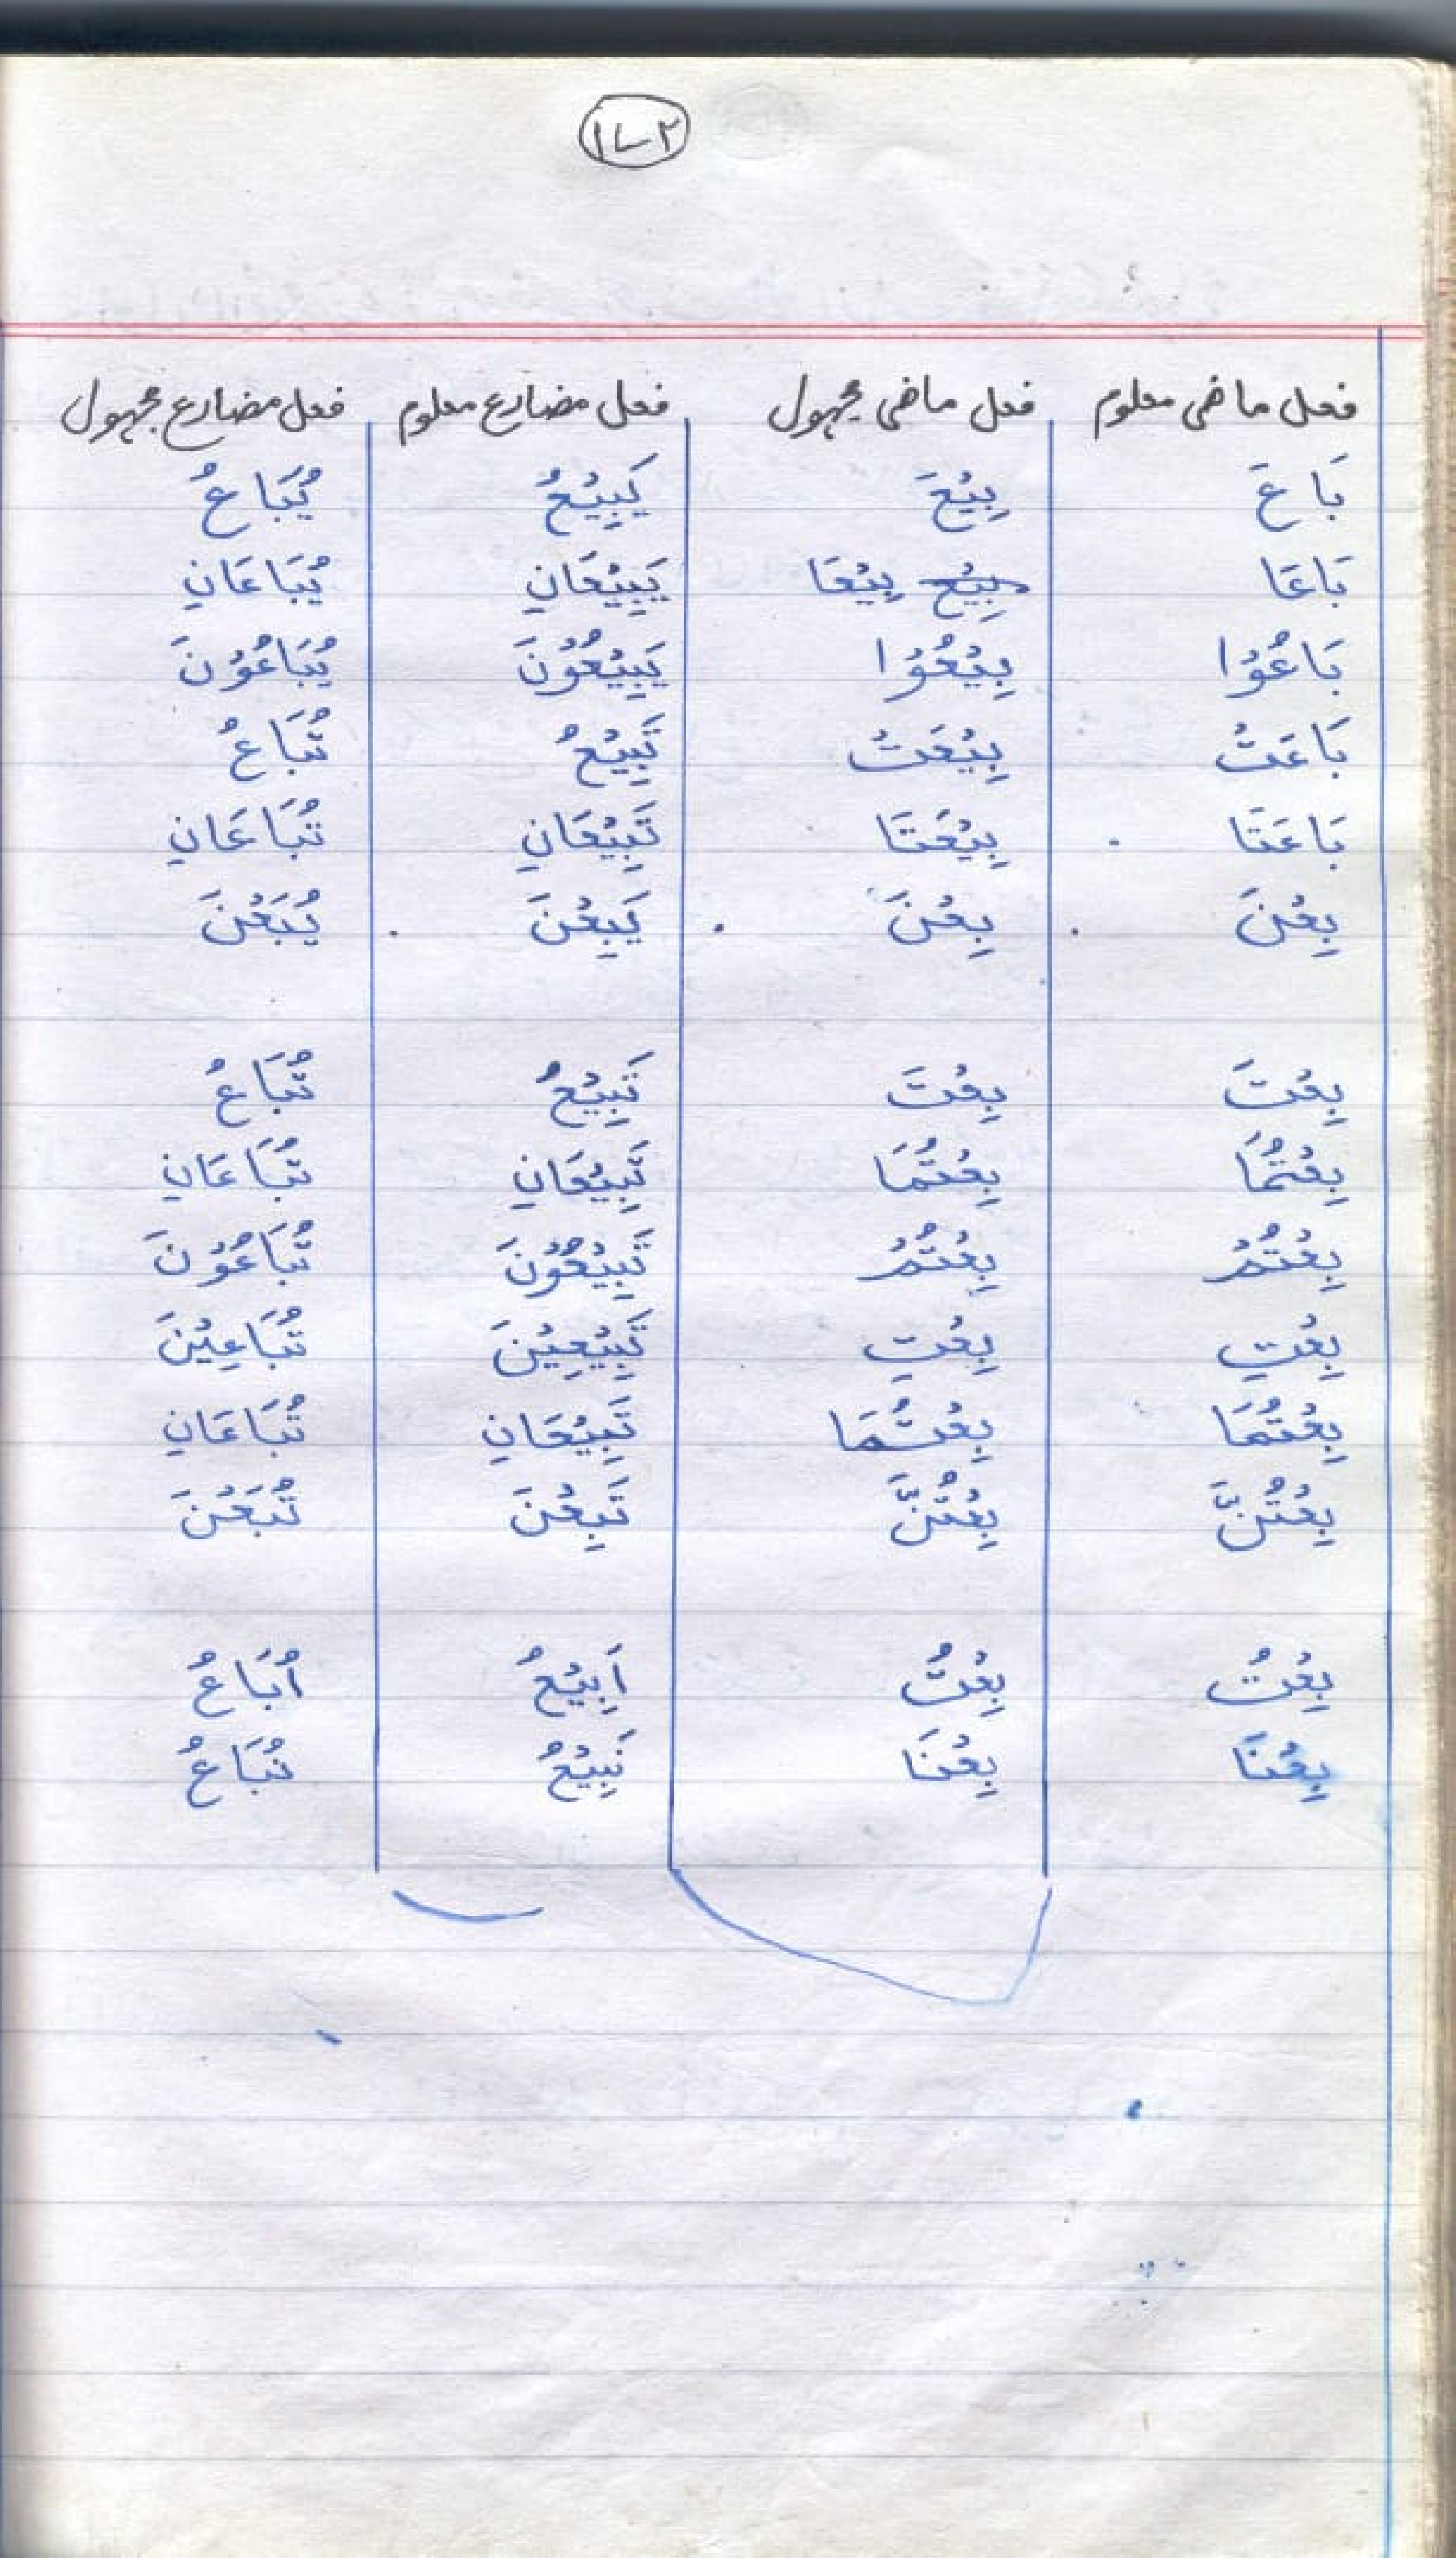 فعل ماضی معلوم فعل ماضی مجہول فعل مضارع معلوم فعل مضارع مجہول
بَاعَ بِيْعَ يَبِيْعُ يُبَاعُ
بَاعَا بِيْعَ بِيْعَا يَبِيْعَانِ يُبَاعَانِ
بَاعُوْا بِيْعُوْا يَبِيْعُوْنَ يُبَاعُوْنَ
بَاعَتْ بِيْعَتْ تَبِيْعُ تُبَاعُ
بَاعَتَا بِيْعَتَا تَبِيْعَانِ تُبَاعَانِ
بِعْنَ بِعْنَ يَبِعْنَ يُبَعْنَ
بِعْتَ بِعْتَ تَبِيْعُ تُبَاعُ
بِعْتُمَا بِعْتُمَا تَبِيْعَانِ تُبَاعَانِ
بِعْتُمْ بِعْتُمْ تَبِيْعُوْنَ تُبَاعُوْنَ
بِعْتِ بِعْتِ تَبِيْعِيْنَ تُبَاعِيْنَ
بِعْتُمَا بِعْتُمَا تَبِيْعَانِ تُبَاعَانِ
بِعْتُنَّ بِعْتُنَّ تَبِعْنَ تُبَعْنَ
بِعْتُ بِعْتُ اَبِيْعُ اُبَاعُ
بِعْنَا بِعْنَا نَبِيْعُ نُبَاعُ